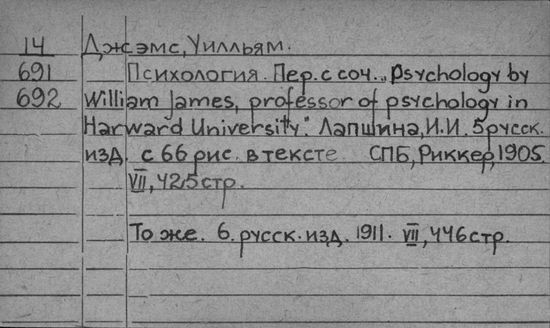 14 Джэмс, Уилльям.
691 Психология. Пер. с соч. „Psychology by
692 William James, professor of psychology in
Harward University". Лапшина, И.И. 5 русск.
изд. с 66 рис. в тексте СПБ, Риккер, 1905.
VII, 425 стр.
То же. 6. русск. изд. 1911. VII, 446 стр.